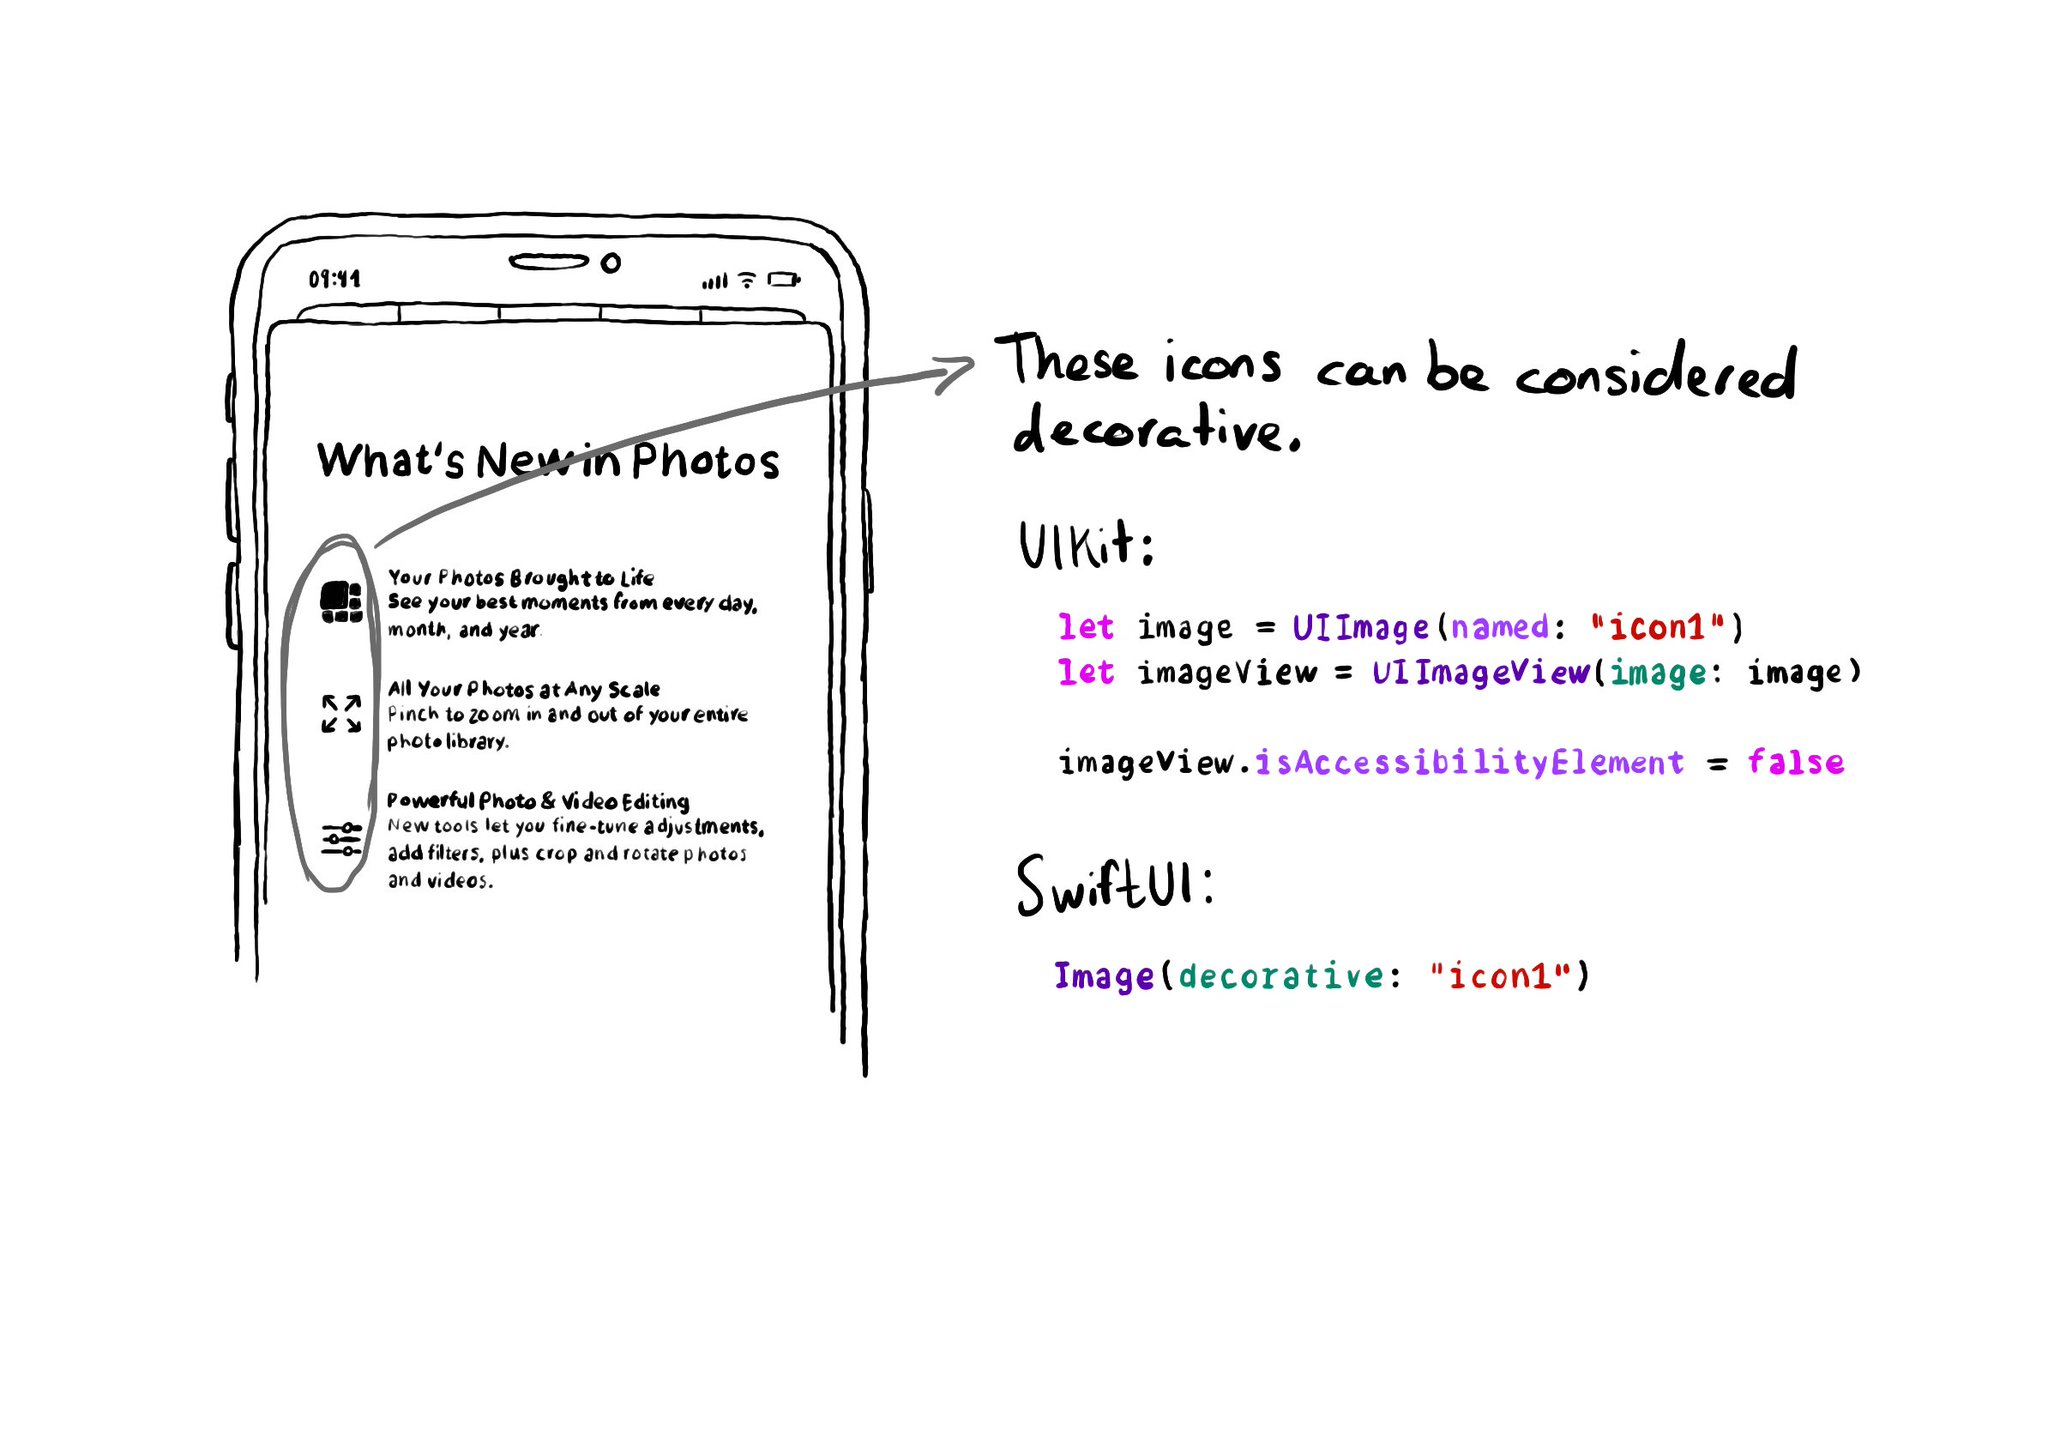 09:41
What's New in Photos
Your Photos Brought to Life
See your best moments from every day,
month, and year.
All Your Photos at Any Scale
Pinch to zoom in and out of your entire
photo library.
Powerful Photo & Video Editing
New tools let you fine-tune adjustments,
add filters, plus crop and rotate photos
and videos.
These icons can be considered
decorative.
UIKit:
let image = UIImage(named: "icon1")
let imageView = UIImageView(image: image)
imageView.isAccessibilityElement = false
SwiftUI:
Image(decorative: "icon1")